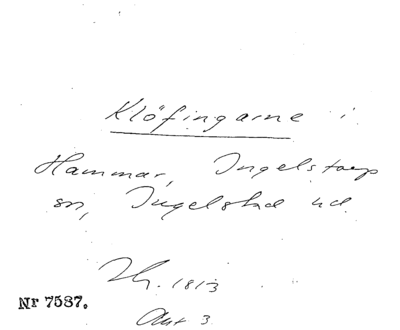 Klöfingarne i
Hammar, Ingelstorp
sn, Ingelstad hd.
1813
Nr 7587.
3